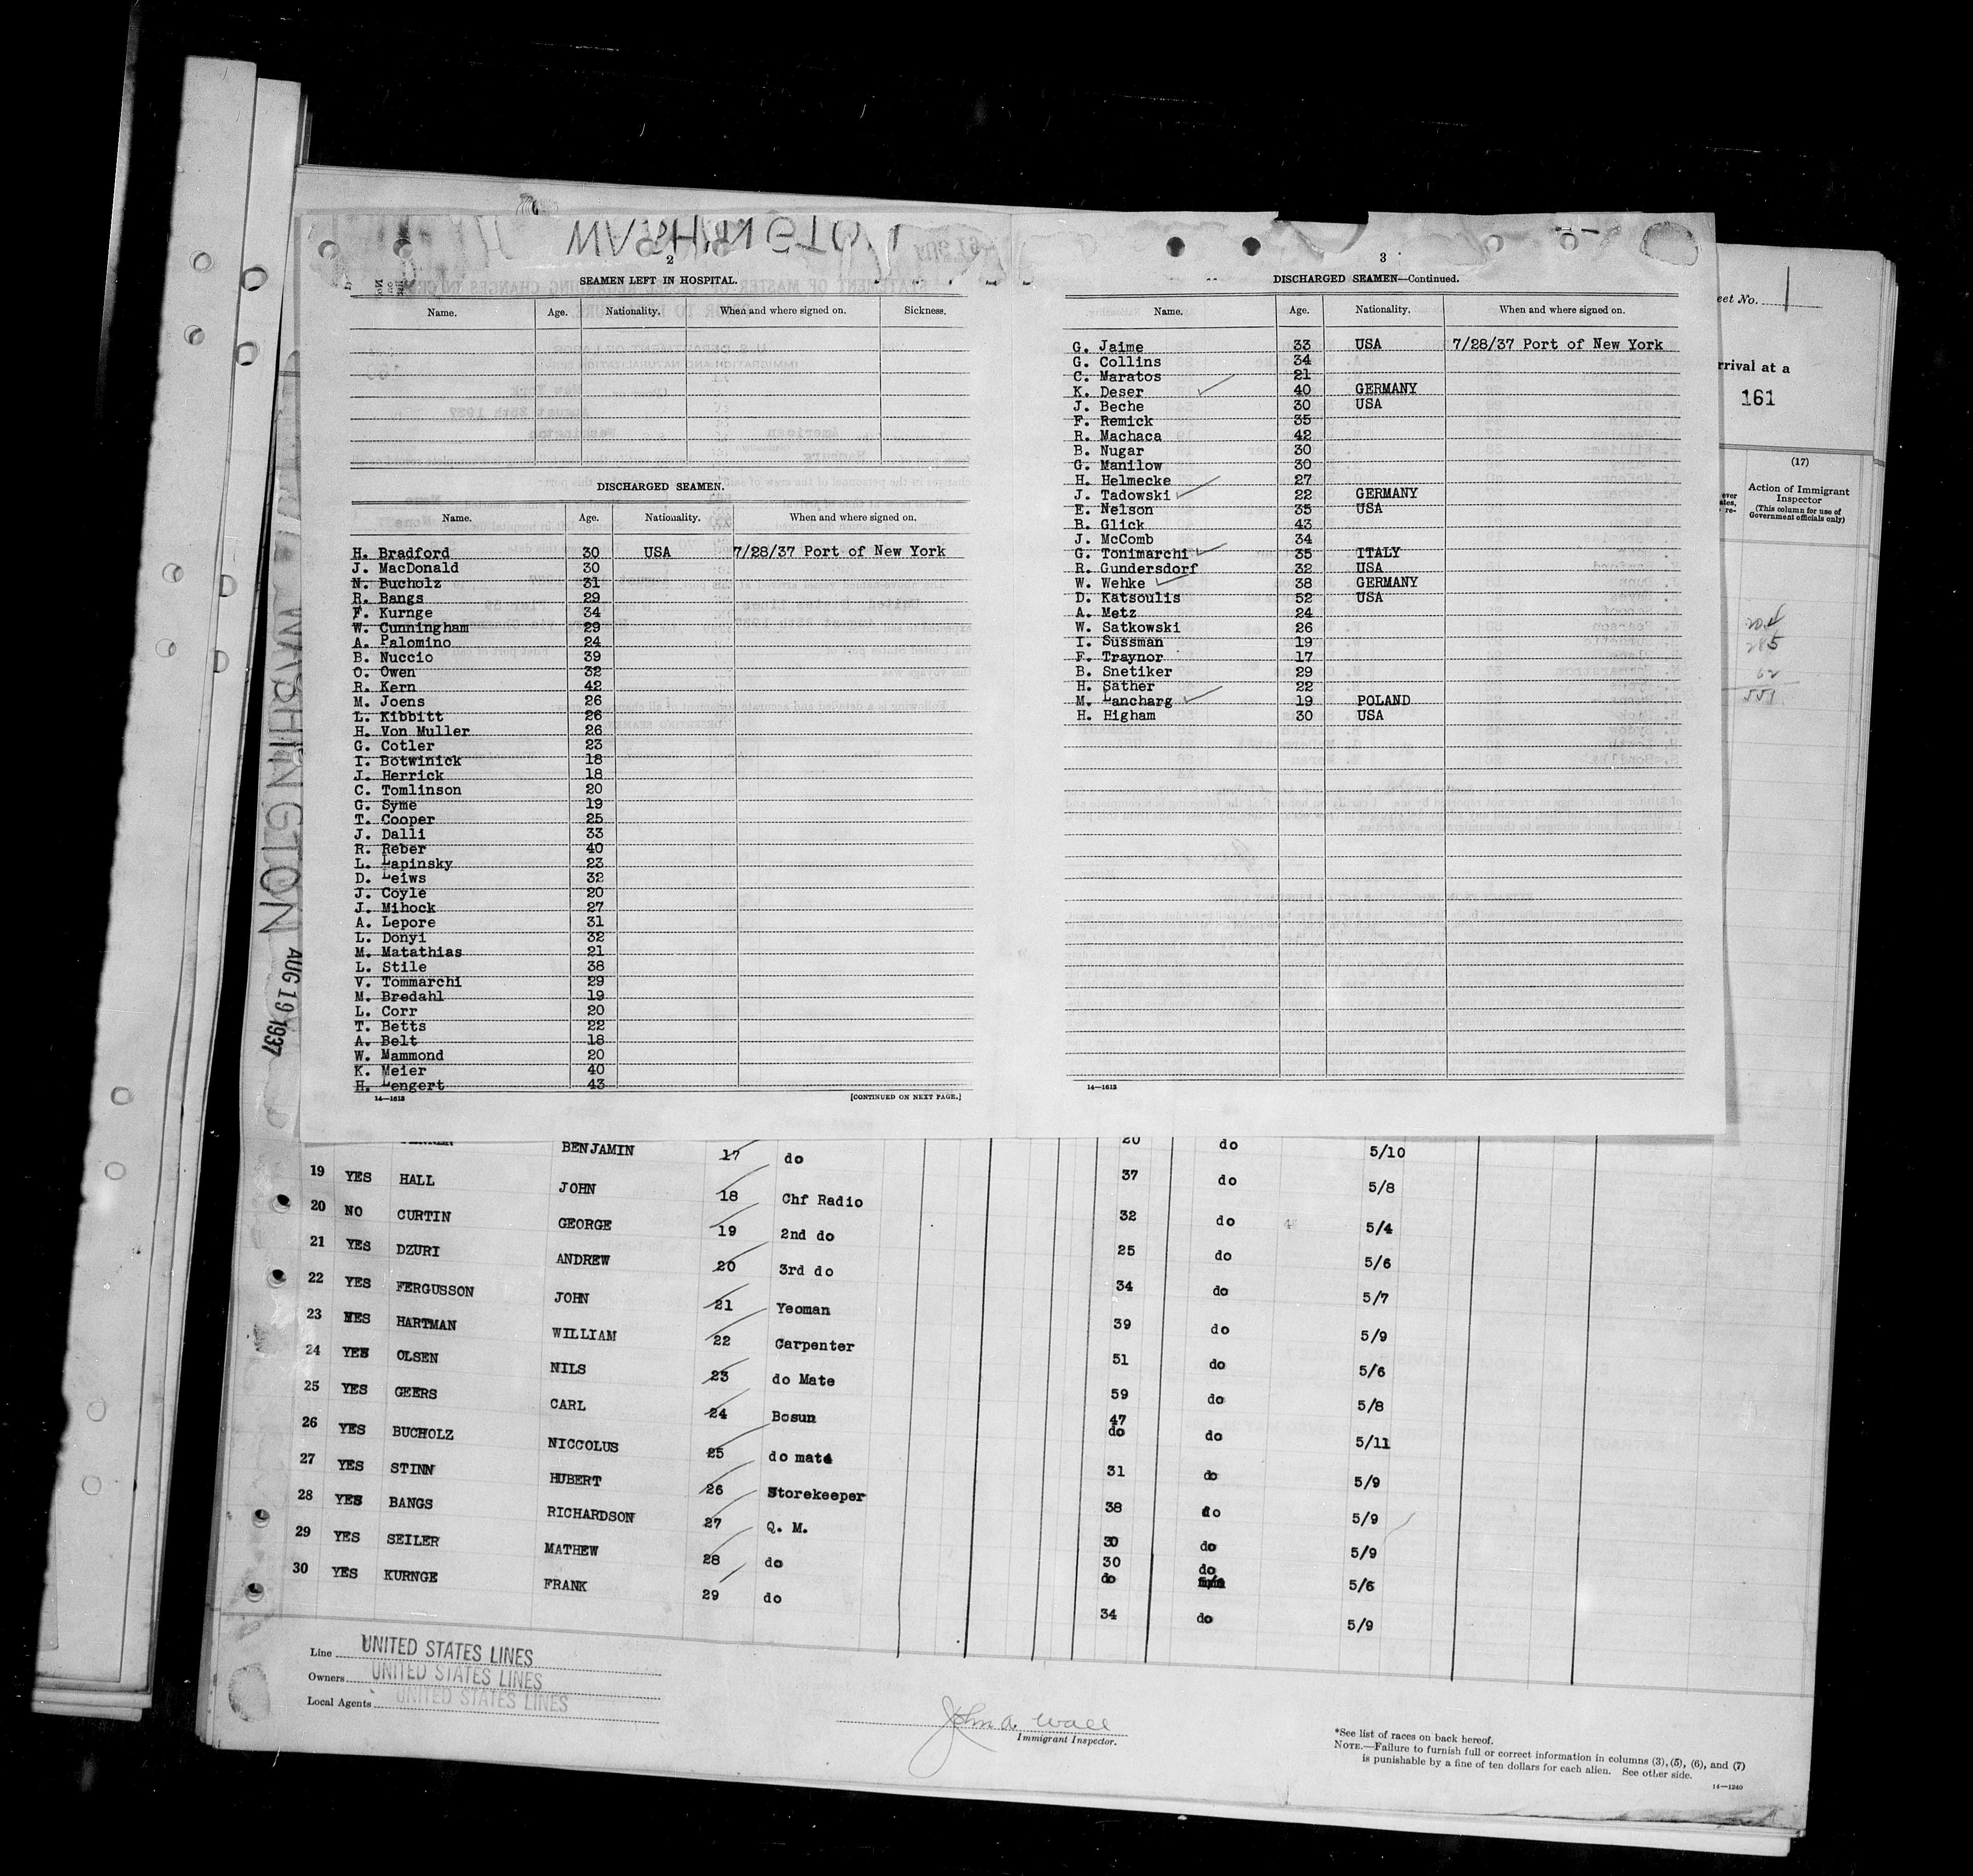 WASHINGTON
2
SEAMEN LEFT IN HOSPITAL.
Name. Age. Nationality. When and where signed on. Sickness.
DISCHARGED SEAMEN.
Name. Age. Nationality. When and where signed on.
H. Bradford 30 USA 7/28/37 Port of New York
J. MacDonald 30
N. Bucholz 31
R. Bangs 29
F. Kurnge 34
W. Cunningham 29
A. Palomino 24
B. Nuccio 39
O. Owen 32
R. Kern 42
M. Joens 26
L. Kibbitt 26
H. Von Muller 26
G. Cotler 23
I. Botwinick 18
J. Herrick 18
C. Tomlinson 20
G. Syme 19
T. Cooper 25
J. Dalli 33
R. Reber 40
L. Lapinsky 23
D. Leiws 32
J. Coyle 20
J. Mihock 27
A. Lepore 31
L. Donyi 32
M. Matathias 21
L. Stile 38
V. Tommarchi 29
M. Bredahl 19
L. Corr 20
T. Betts 22
A. Belt 18
W. Mammond 20
K. Meier 40
H. Lengert 43
14—1613 [CONTINUED ON NEXT PAGE.]
3
DISCHARGED SEAMEN—Continued.
Name. Age. Nationality. When and where signed on.
G. Jaime 33 USA 7/28/37 Port of New York
G. Collins 34
C. Maratos 21
K. Deser 40 GERMANY
J. Beche 30 USA
F. Remick 35
R. Machaca 42
B. Nugar 30
G. Manilow 30
H. Helmecke 27
J. Tadowski 22 GERMANY
E. Nelson 35 USA
B. Glick 43
J. McComb 34
G. Tonimarchi 35 ITALY
R. Gundersdorf 32 USA
W. Wehke 38 GERMANY
D. Katsoulis 52 USA
A. Metz 24
W. Satkowski 26
I. Sussman 19
F. Traynor 17
B. Snetiker 29
H. Sather 22
M. Lancharg 19 POLAND
H. Higham 30 USA
14—1613
eet No. 1
rrival at a
161
(17)
Action of Immigrant
Inspector
(This column for use of
Government officials only)
WASHINGTON
AUG 19 1937
BENJAMIN 17 do 20 do 5/10
19 YES HALL JOHN 18 Chf Radio 37 do 5/8
20 NO CURTIN GEORGE 19 2nd do 32 do 5/4
21 YES DZURI ANDREW 20 3rd do 25 do 5/6
22 YES FERGUSSON JOHN 21 Yeoman 34 do 5/7
23 YES HARTMAN WILLIAM 22 Carpenter 39 do 5/9
24 YES OLSEN NILS 23 do Mate 51 do 5/6
25 YES GEERS CARL 24 Bosun 59 do 5/8
26 YES BUCHOLZ NICCOLUS 25 do mate 47 do do 5/11
27 YES STINN HUBERT 26 Storekeeper 31 do 5/9
28 YES BANGS RICHARDSON 27 Q. M. 38 do 5/9
29 YES SEILER MATHEW 28 do 30 do 5/9
30 YES KURNGE FRANK 29 do 30 do do 5/6
34 do 5/9
Line UNITED STATES LINES
Owners UNITED STATES LINES
Local Agents UNITED STATES LINES
John A. Wall
Immigrant Inspector.
*See list of races on back hereof.
NOTE.—Failure to furnish full or correct information in columns (3), (5), (6), and (7)
is punishable by a fine of ten dollars for each alien. See other side.
14—1240